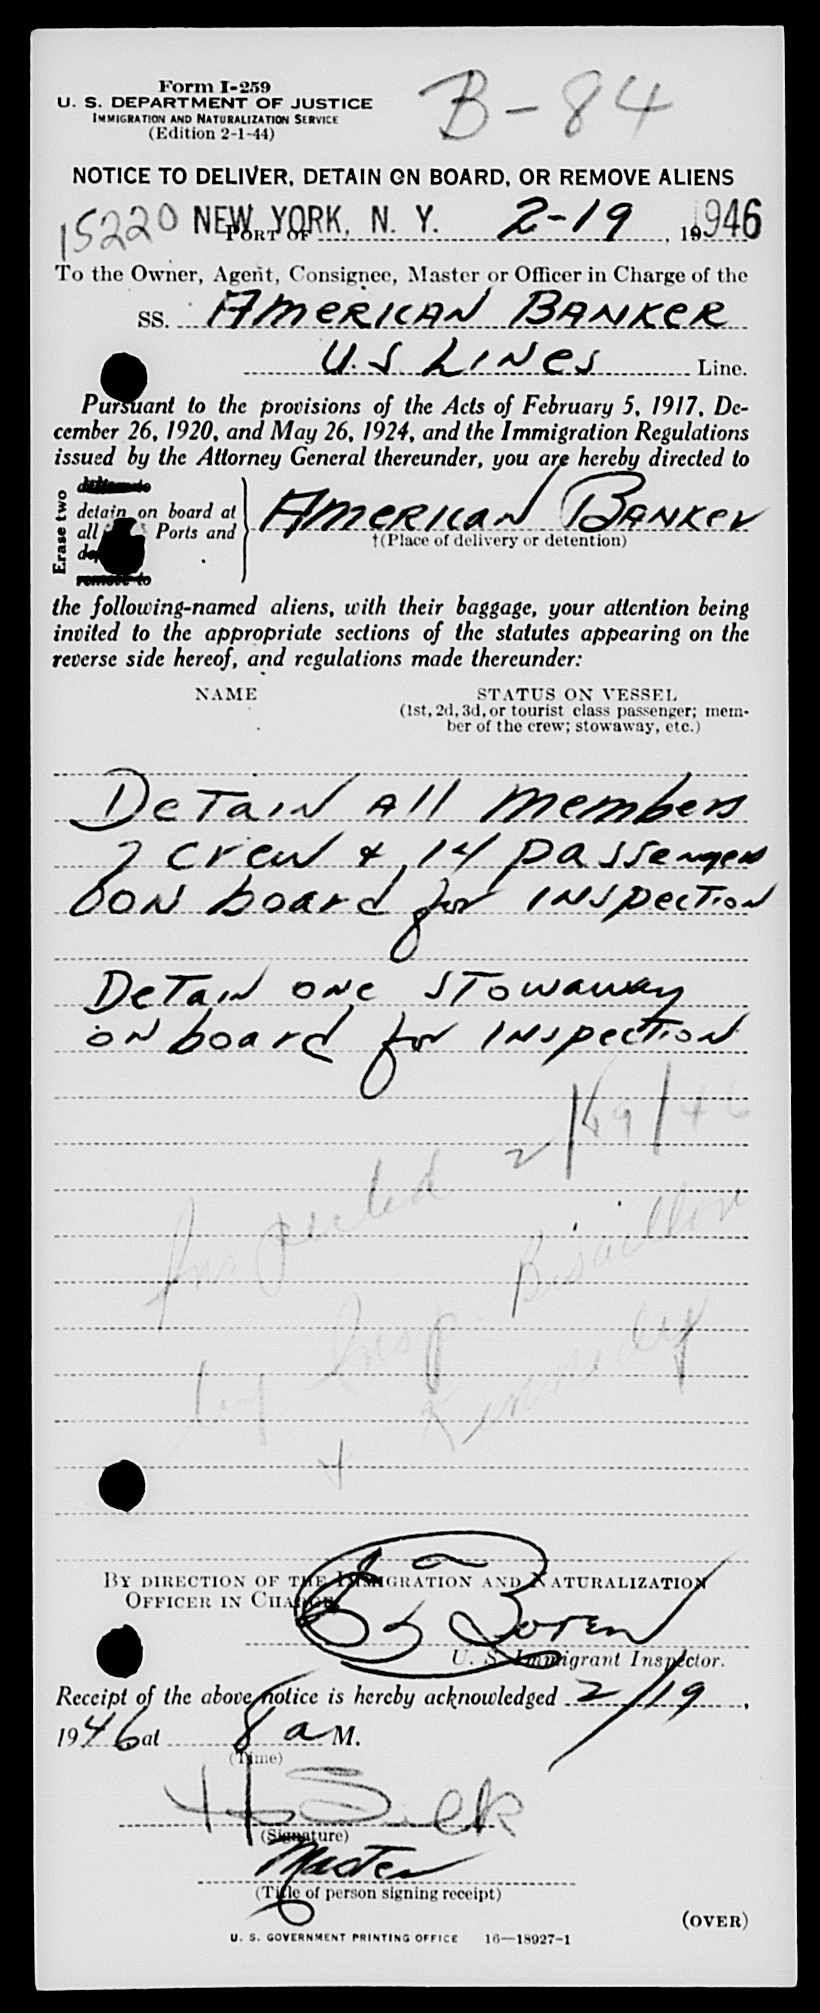 Form I-259
U. S. DEPARTMENT OF JUSTICE
IMMIGRATION AND NATURALIZATION SERVICE
(Edition 2-1-44)
B-84
NOTICE TO DELIVER, DETAIN ON BOARD, OR REMOVE ALIENS
15220 NEW YORK, N. Y. 2-19, 1946
PORT OF
To the Owner, Agent, Consignee, Master or Officer in Charge of the
SS. AMERICAN BANKER
U.S LINES Line.
Pursuant to the provisions of the Acts of February 5, 1917, De-
cember 26, 1920, and May 26, 1924, and the Immigration Regulations
issued by the Attorney General thereunder, you are hereby directed to
Erase two
detain on board at
all Ports and
remove to
AMERICAN BANKER
†(Place of delivery or detention)
the following-named aliens, with their baggage, your attention being
invited to the appropriate sections of the statutes appearing on the
reverse side hereof, and regulations made thereunder:
NAME STATUS ON VESSEL
(1st, 2d, 3d, or tourist class passenger; mem-
ber of the crew; stowaway, etc.)
Detain All members
crew & 14 passengers
on board for INSpection
Detain one Stowaway
on board for INSpection
2/19/46
Inspected
by Insp. Bisaillon
+ Kennedy
BY DIRECTION OF THE IMMIGRATION AND NATURALIZATION
OFFICER IN CHARGE
U. S. Immigrant Inspector.
Receipt of the above notice is hereby acknowledged 2/19,
1946 at 8 a M.
(Time)
(Signature)
Master
(Title of person signing receipt)
(OVER)
U. S. GOVERNMENT PRINTING OFFICE 16—18927-1